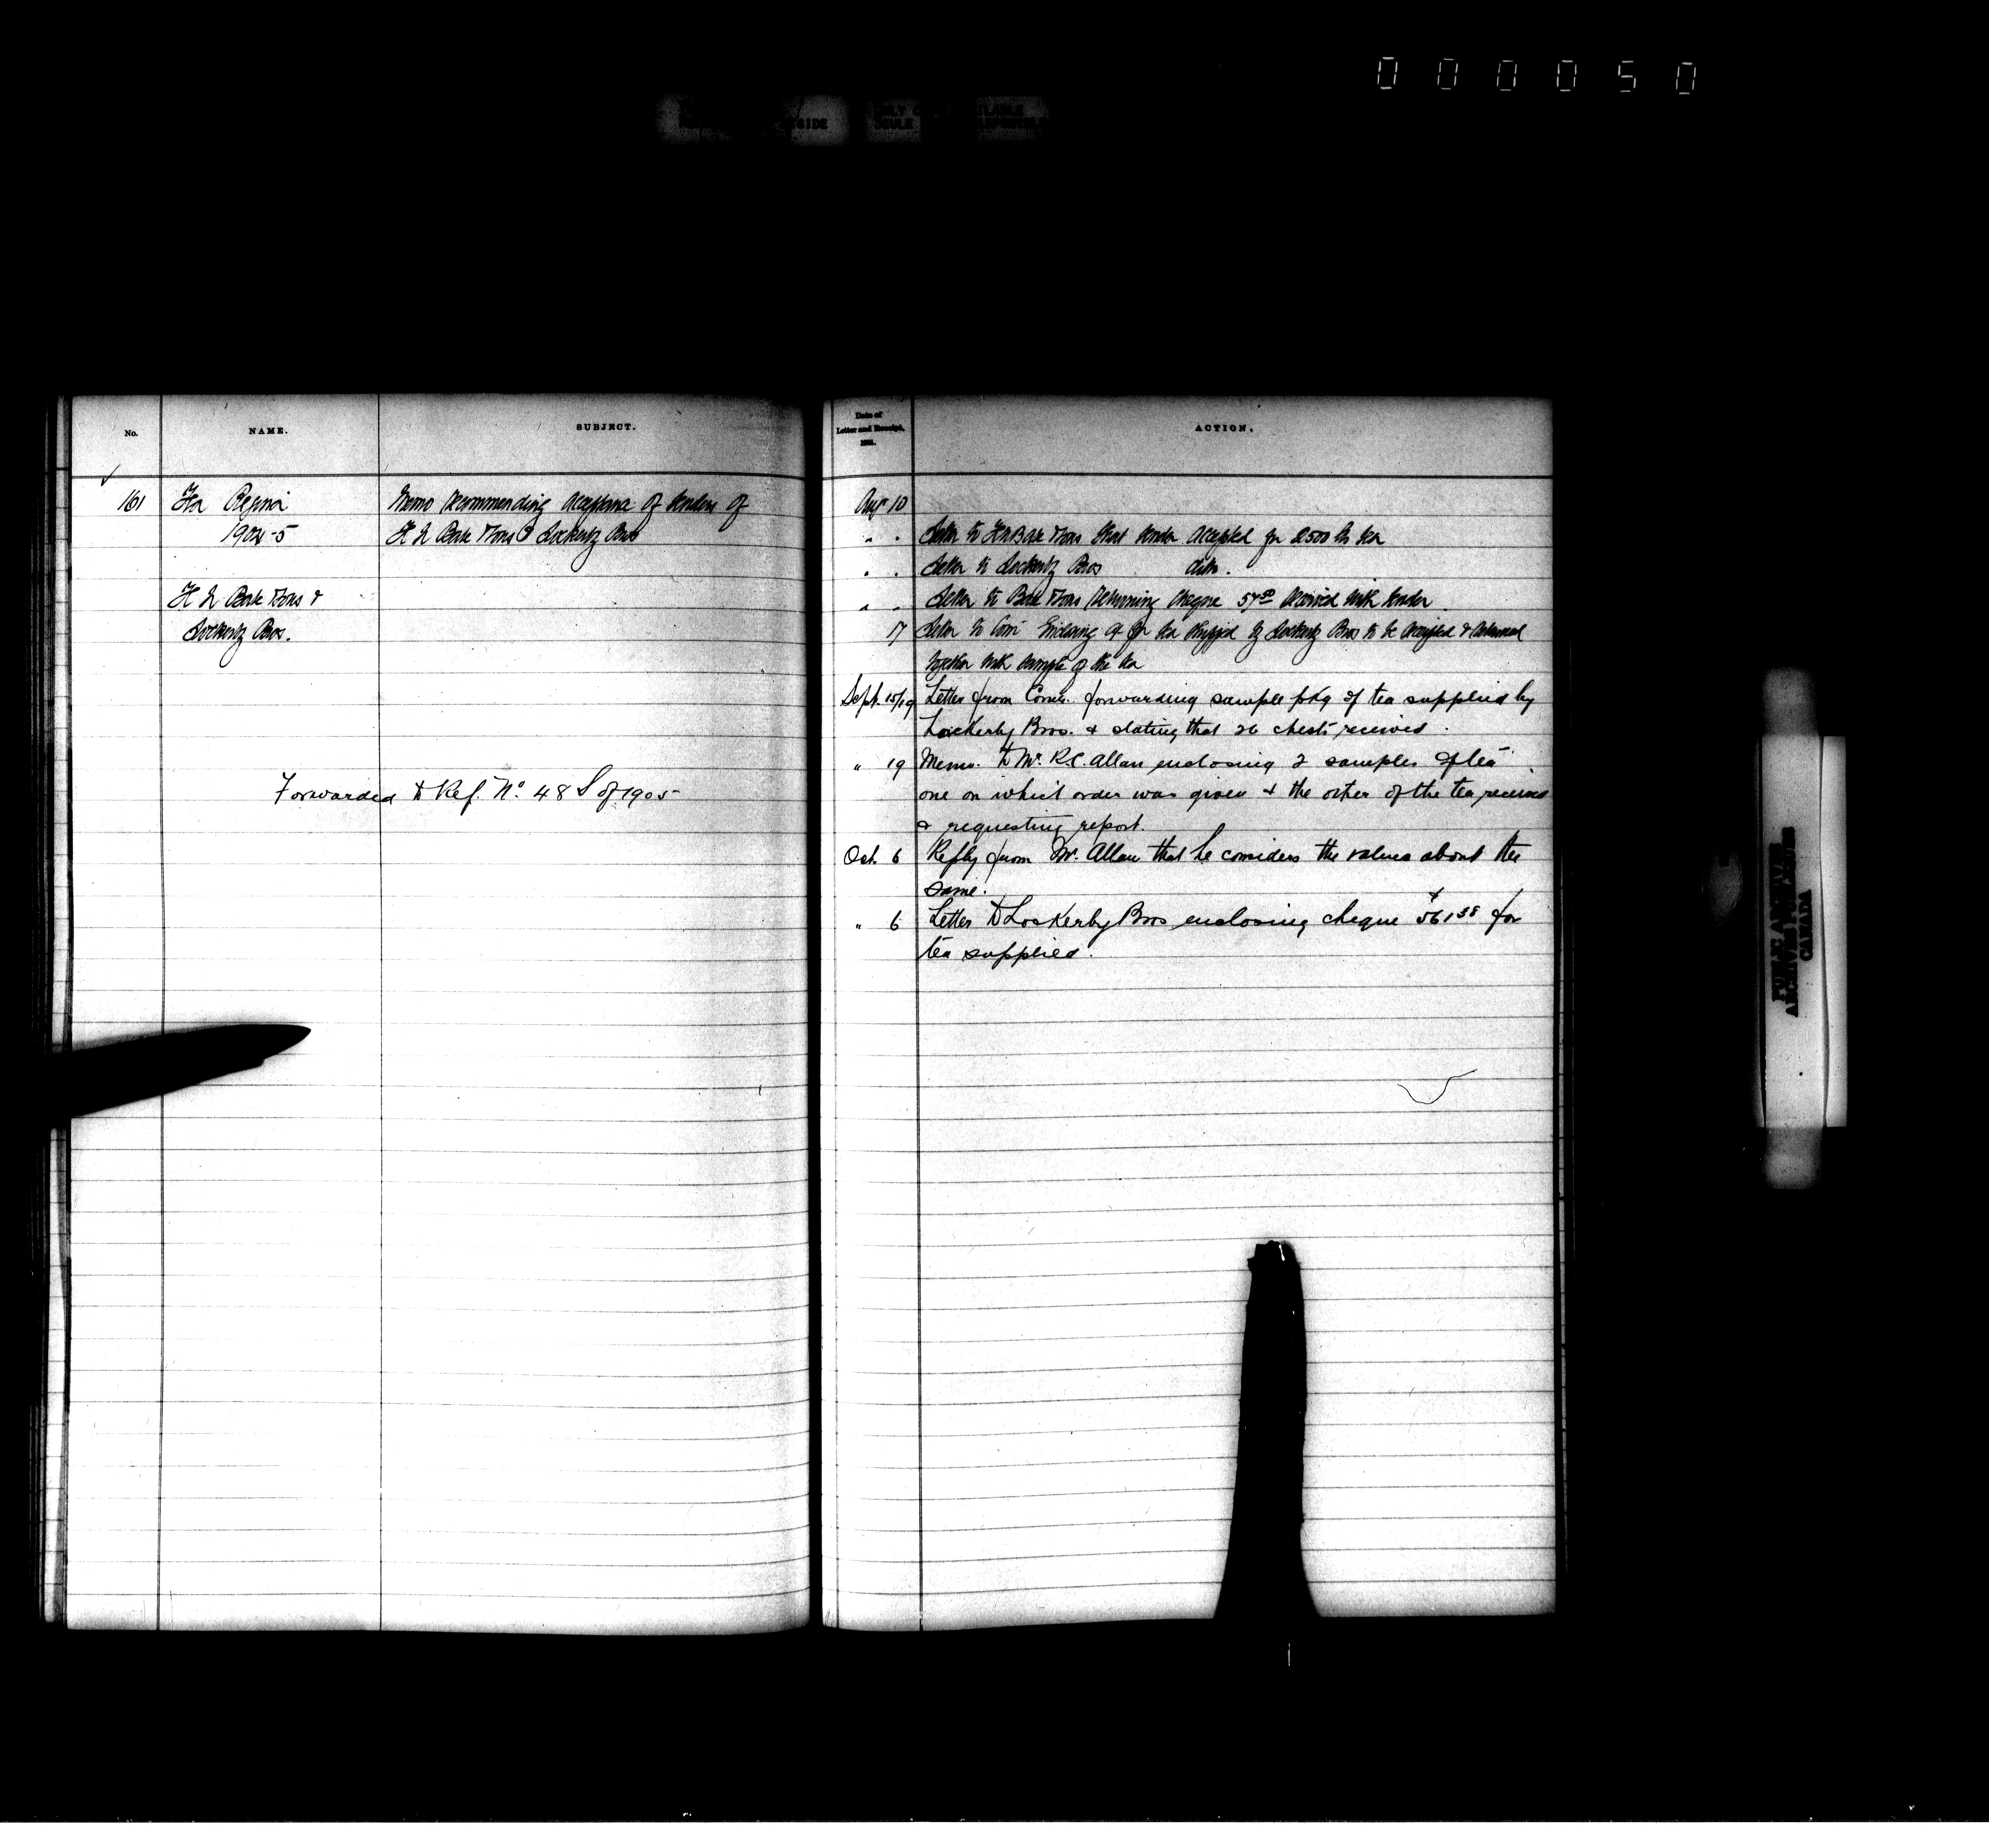 000050
No.
NAME.
SUBJECT.
161
Regina
Memo recommending acceptance of tenders of
1904-5
& Lockerby Bros
&
Lockerby Bros.
Forwarded to Ref. No. 48 S of 1905
Date of
Letter and Receipt,
ACTION.
Augt 10
" " Letter to that tender accepted for 2500 lbs tea
" " Letter to Lockerby Bros ditto.
" " Letter to returning cheque 57.50 received with tender
17 Letter to Com enclosing for tea shipped by Lockerby Bros to be receipted & returned
together with sample of the tea
Sept. 15/19 Letter from Comr. forwarding sample pkg of tea supplied by
Lockerby Bros. & stating that 26 chests received.
" 19 Memo. to Mr. R.C. Allan enclosing 2 samples of tea
one on which order was given & the other of the tea received
& requesting report.
Oct. 6 Reply from Mr. Allan that he considers the values about the
same.
" 6 Letter to Lockerby Bros enclosing cheque for
tea supplied.
PUBLIC ARCHIVES
ARCHIVES PUBLIQUES
CANADA